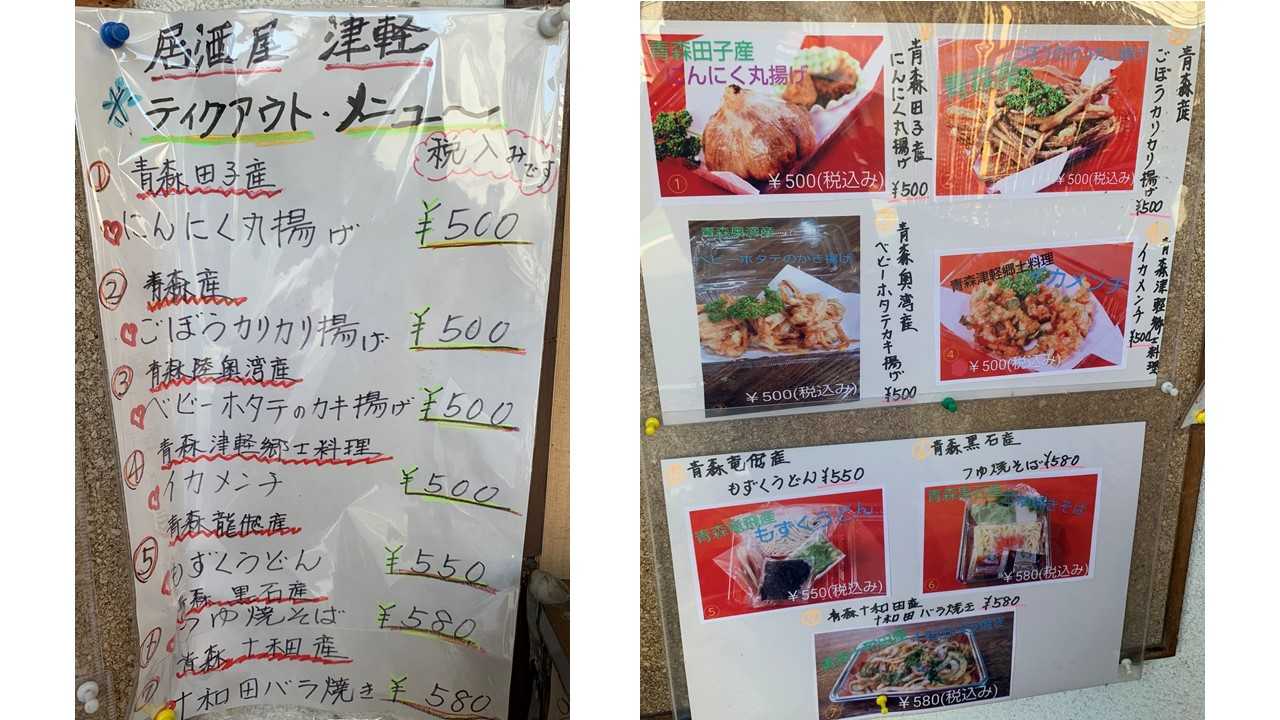 居酒屋 津軽
※ テイクアウト・メニュー
税込みです
① 青森田子産
にんにく丸揚げ ¥500
② 青森産
ごぼうカリカリ揚げ ¥500
③ 青森陸奥湾産
ベビーホタテのカキ揚げ ¥500
④ 青森津軽郷土料理
イカメンチ ¥500
⑤ 青森龍飛産
もずくうどん ¥550
青森 黒石産
つゆ焼そば ¥580
青森 十和田産
十和田バラ焼き ¥580
青森田子産
にんにく丸揚げ
① ¥500(税込み)
青森田子産
にんにく丸揚げ
¥500
② ¥500(税込み)
青森産
ごぼうカリカリ揚げ
¥500
青森奥湾産
ベビーホタテのかき揚げ
¥500(税込み)
青森奥湾産
ベビーホタテカキ揚げ
¥500
青森津軽郷土料理
イカメンチ
④ ¥500(税込み)
青森津軽郷土料理
イカメンチ
¥500
青森竜飛産
もずくうどん ¥550
青森竜飛産
もずくうどん
⑤ ¥550(税込み)
青森黒石産
つゆ焼そば ¥580
⑥ ¥580(税込み)
青森十和田産
十和田バラ焼き ¥580
⑦ ¥580(税込み)